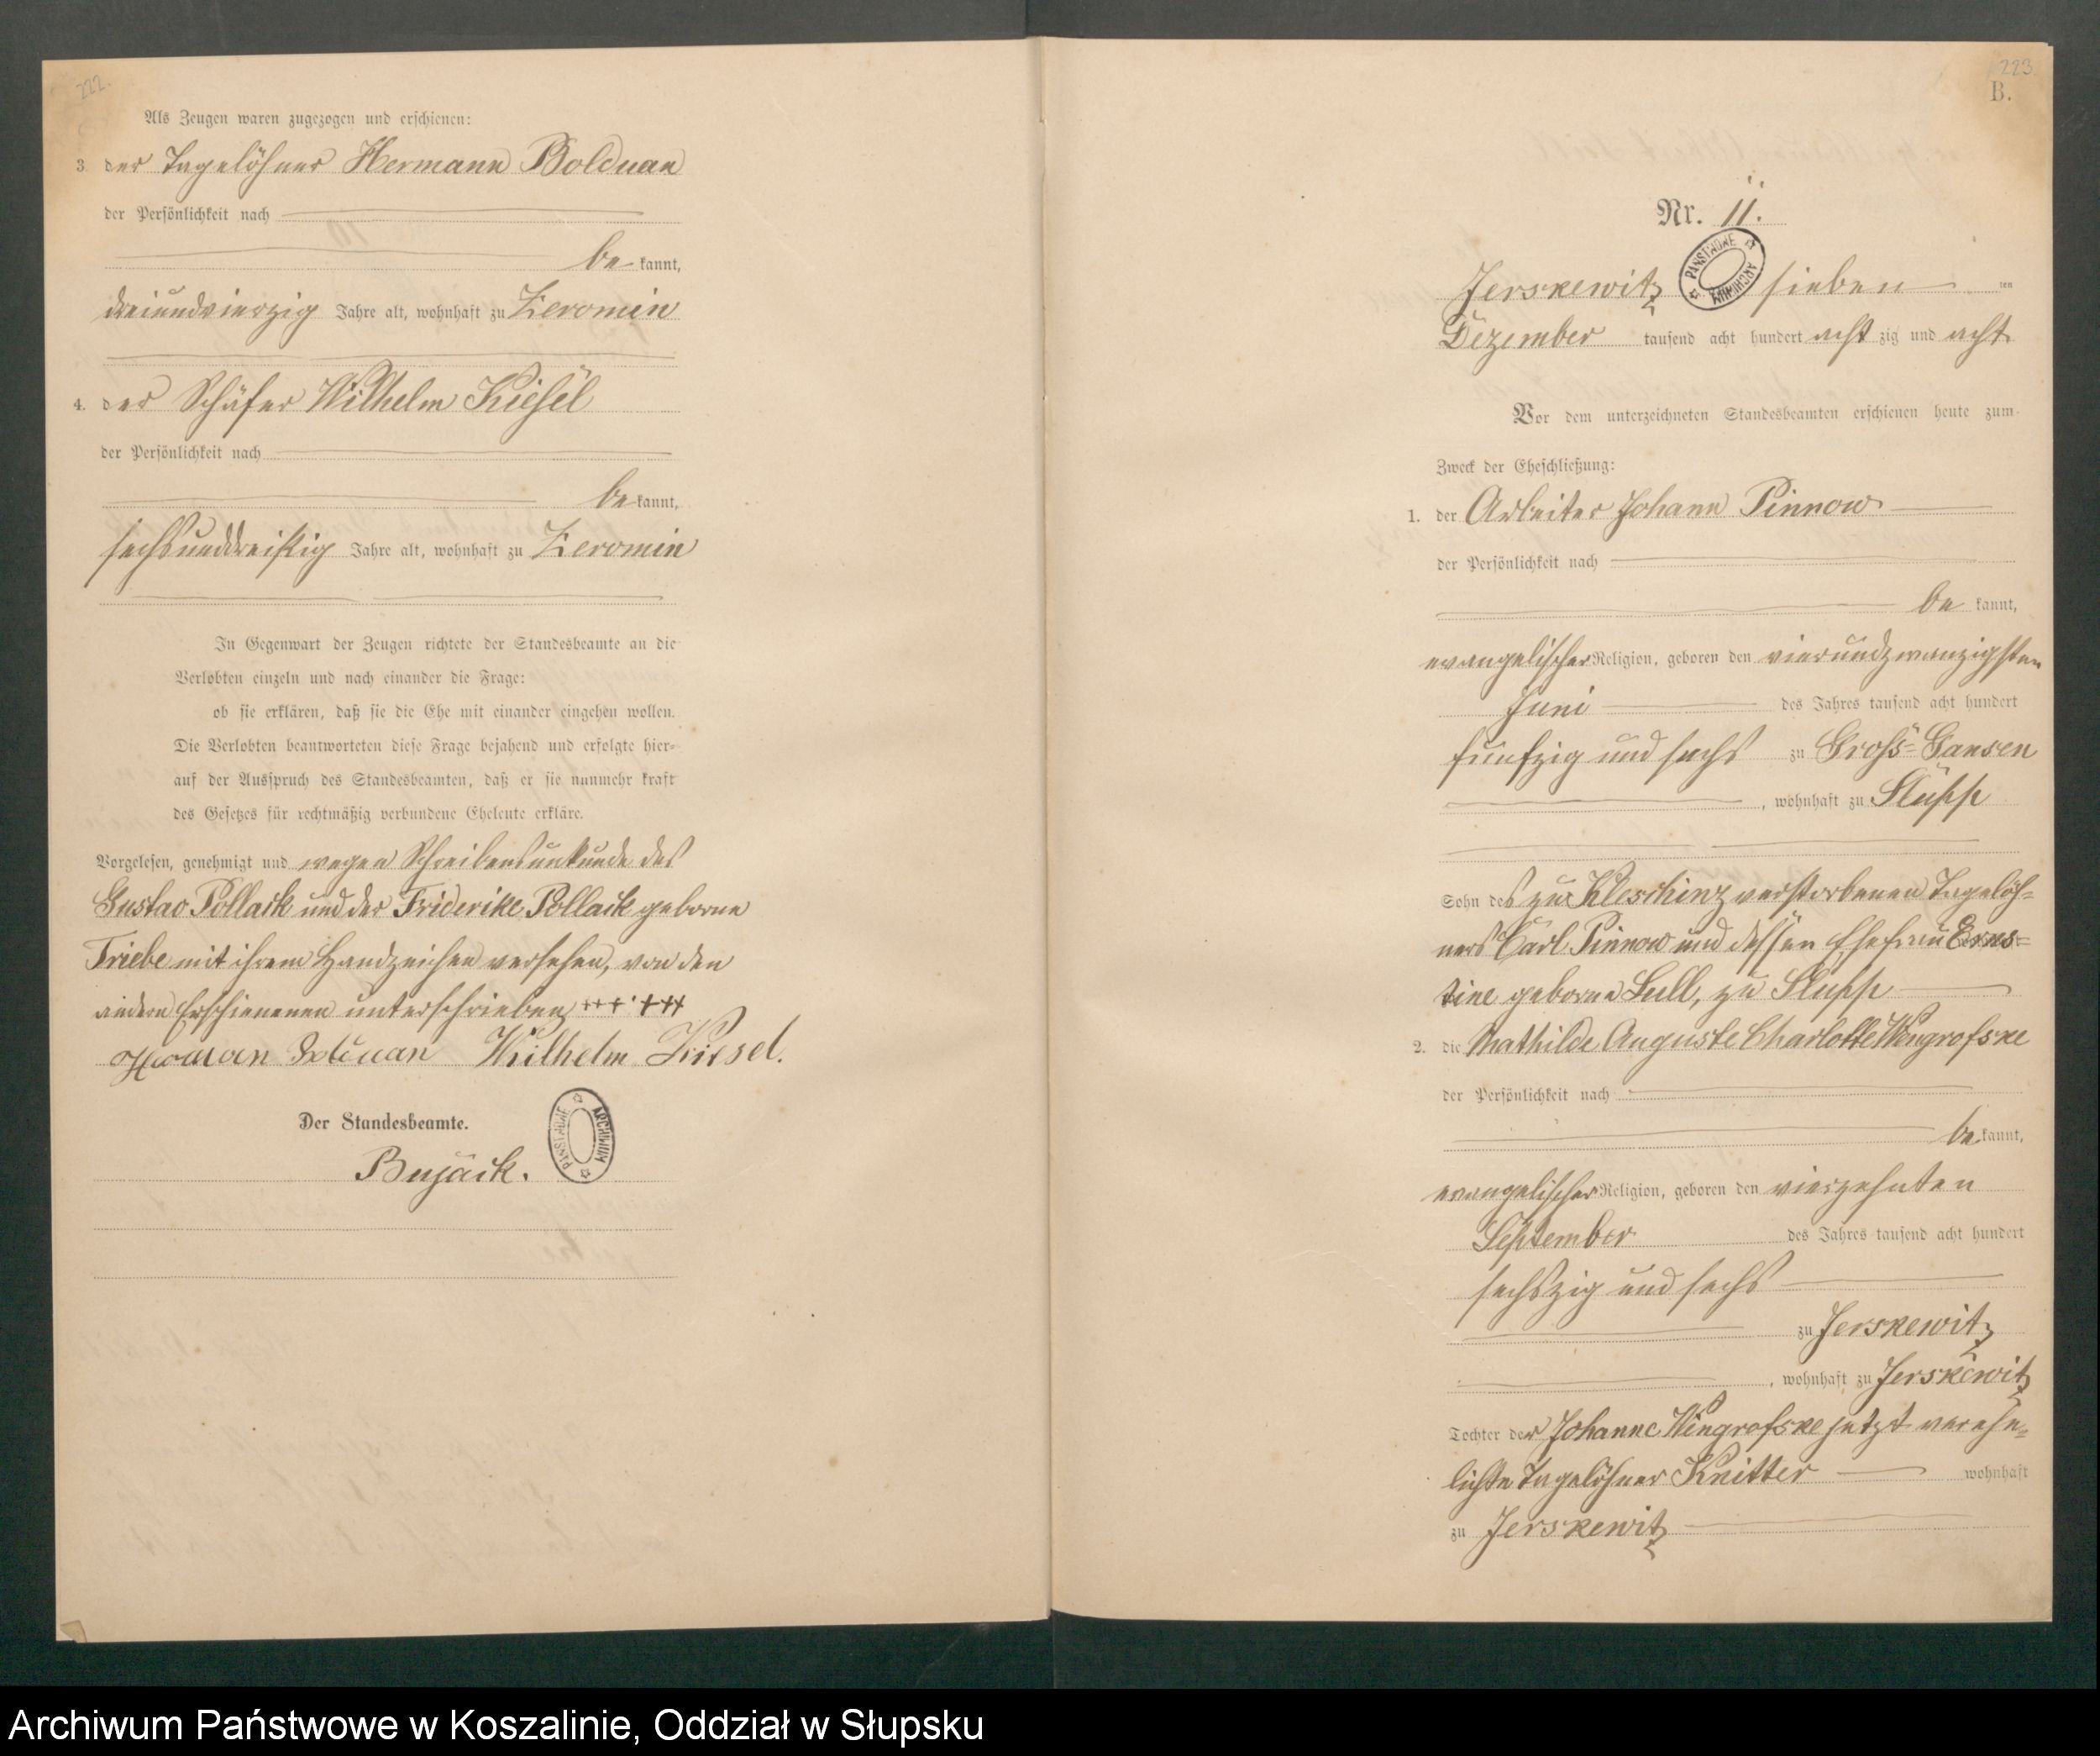 222.
Als Zeugen waren zugezogen und erschienen:
3. der Tagelöhner Hermann Bolduan
der Persönlichkeit nach
be kannt,
dreiundvierzig Jahre alt, wohnhaft zu Zeromin
4. der Schäfer Wilhelm Kiesel
der Persönlichkeit nach
be kannt,
sechsunddreißig Jahre alt, wohnhaft zu Zeromin
In Gegenwart der Zeugen richtete der Standesbeamte an die
Verlobten einzeln und nach einander die Frage:
ob sie erklären, daß sie die Ehe mit einander eingehen wollen.
Die Verlobten beantworteten diese Frage bejahend und erfolgte hier-
auf der Ausspruch des Standesbeamten, daß er sie nunmehr kraft
des Gesetzes für rechtmäßig verbundene Eheleute erkläre.
Vorgelesen, genehmigt und wegen Schreibensunkunde des
Gustav Pollack und der Friderike Pollack geborne
Triebe mit ihrem Handzeichen versehen, von den
andern Erschienenen unterschrieben +++ . +++
Herman Bolduan Wilhelm Kiesel.
Der Standesbeamte.
Bujack.
PANSTWOWE ARCHIWUM
223.
B.
Nr. 11.
Jerskewitz sieben ten
PANSTWOWE ARCHIWUM
Dezember tausend acht hundert acht zig und acht
Vor dem unterzeichneten Standesbeamten erschienen heute zum
Zweck der Eheschließung:
1. der Arbeiter Johann Pinnow
der Persönlichkeit nach
be kannt,
evangelischer Religion, geboren den vierundzwanzigsten
Juni des Jahres tausend acht hundert
fünfzig und sechs zu Groß-Gansen
, wohnhaft zu Stupp
Sohn des zu Kleschinz verstorbenen Tagelöh-
ners Carl Pinnow und dessen Ehefrau Ernes-
tine geborne Lull, zu Stupp
2. die Mathilde Auguste Charlotte Wengrofske
der Persönlichkeit nach
be kannt,
evangelischer Religion, geboren den vierzehnten
September des Jahres tausend acht hundert
sechszig und sechs
zu Jerskewitz
, wohnhaft zu Jerskewitz
Tochter der Johanne Wengrofske jetzt verehe-
lichte Tagelöhner Knitter wohnhaft
zu Jerskewitz
Archiwum Państwowe w Koszalinie, Oddział w Słupsku